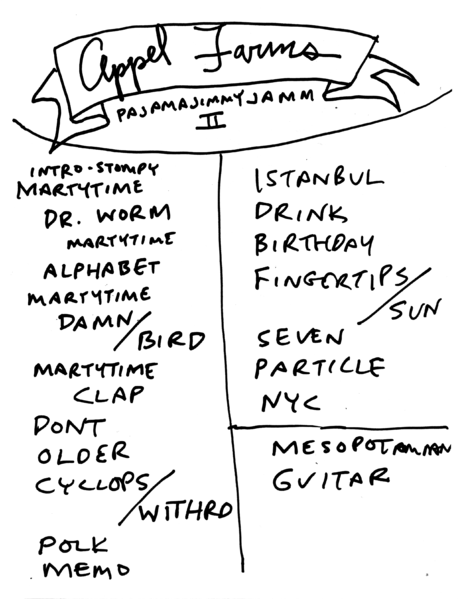 appel Farms
PAJAMAJIMMYJAMM
II
INTRO-STOMPY
MARTYTIME
DR. WORM
MARTYTIME
ALPHABET
MARTYTIME
DAMN/BIRD
MARTYTIME
CLAP
DONT
OLDER
CYCLOPS/WITHRD
POLK
MEMO
ISTANBUL
DRINK
BIRTHDAY
FINGERTIPS/SUN
SEVEN
PARTICLE
NYC
MESOPOTAMIAN
GUITAR